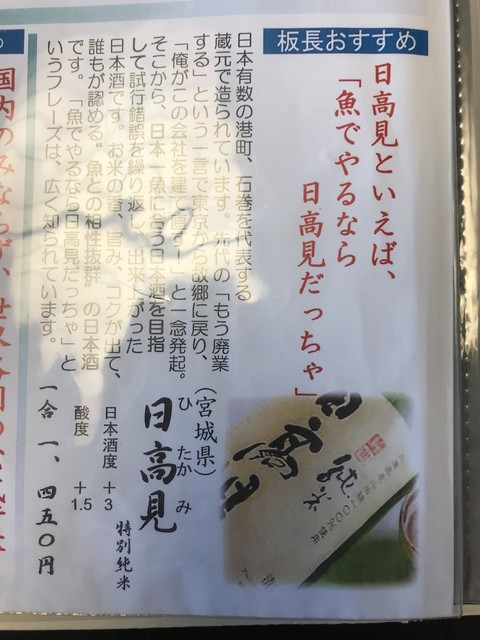 板長おすすめ
日高見といえば、
「魚でやるなら
日高見だっちゃ」
日本有数の港町、石巻を代表する
蔵元で造られています。先代の「もう廃業
する」という一言で東京から故郷に戻り、
「俺がこの会社を建て直す！」と一念発起。
そこから、日本一魚に合う日本酒を目指
して試行錯誤を繰り返し、出来上がった
日本酒です。お米の香、旨み、コクが出て、
誰もが認める〝魚との相性抜群〟の日本酒
です。「魚でやるなら日高見だっちゃ」と
いうフレーズは、広く知られています。
（宮城県）
日高見
ひたかみ
特別純米
日本酒度 +3
酸度 +1.5
一合 一、四五〇円
国内のみならず、世